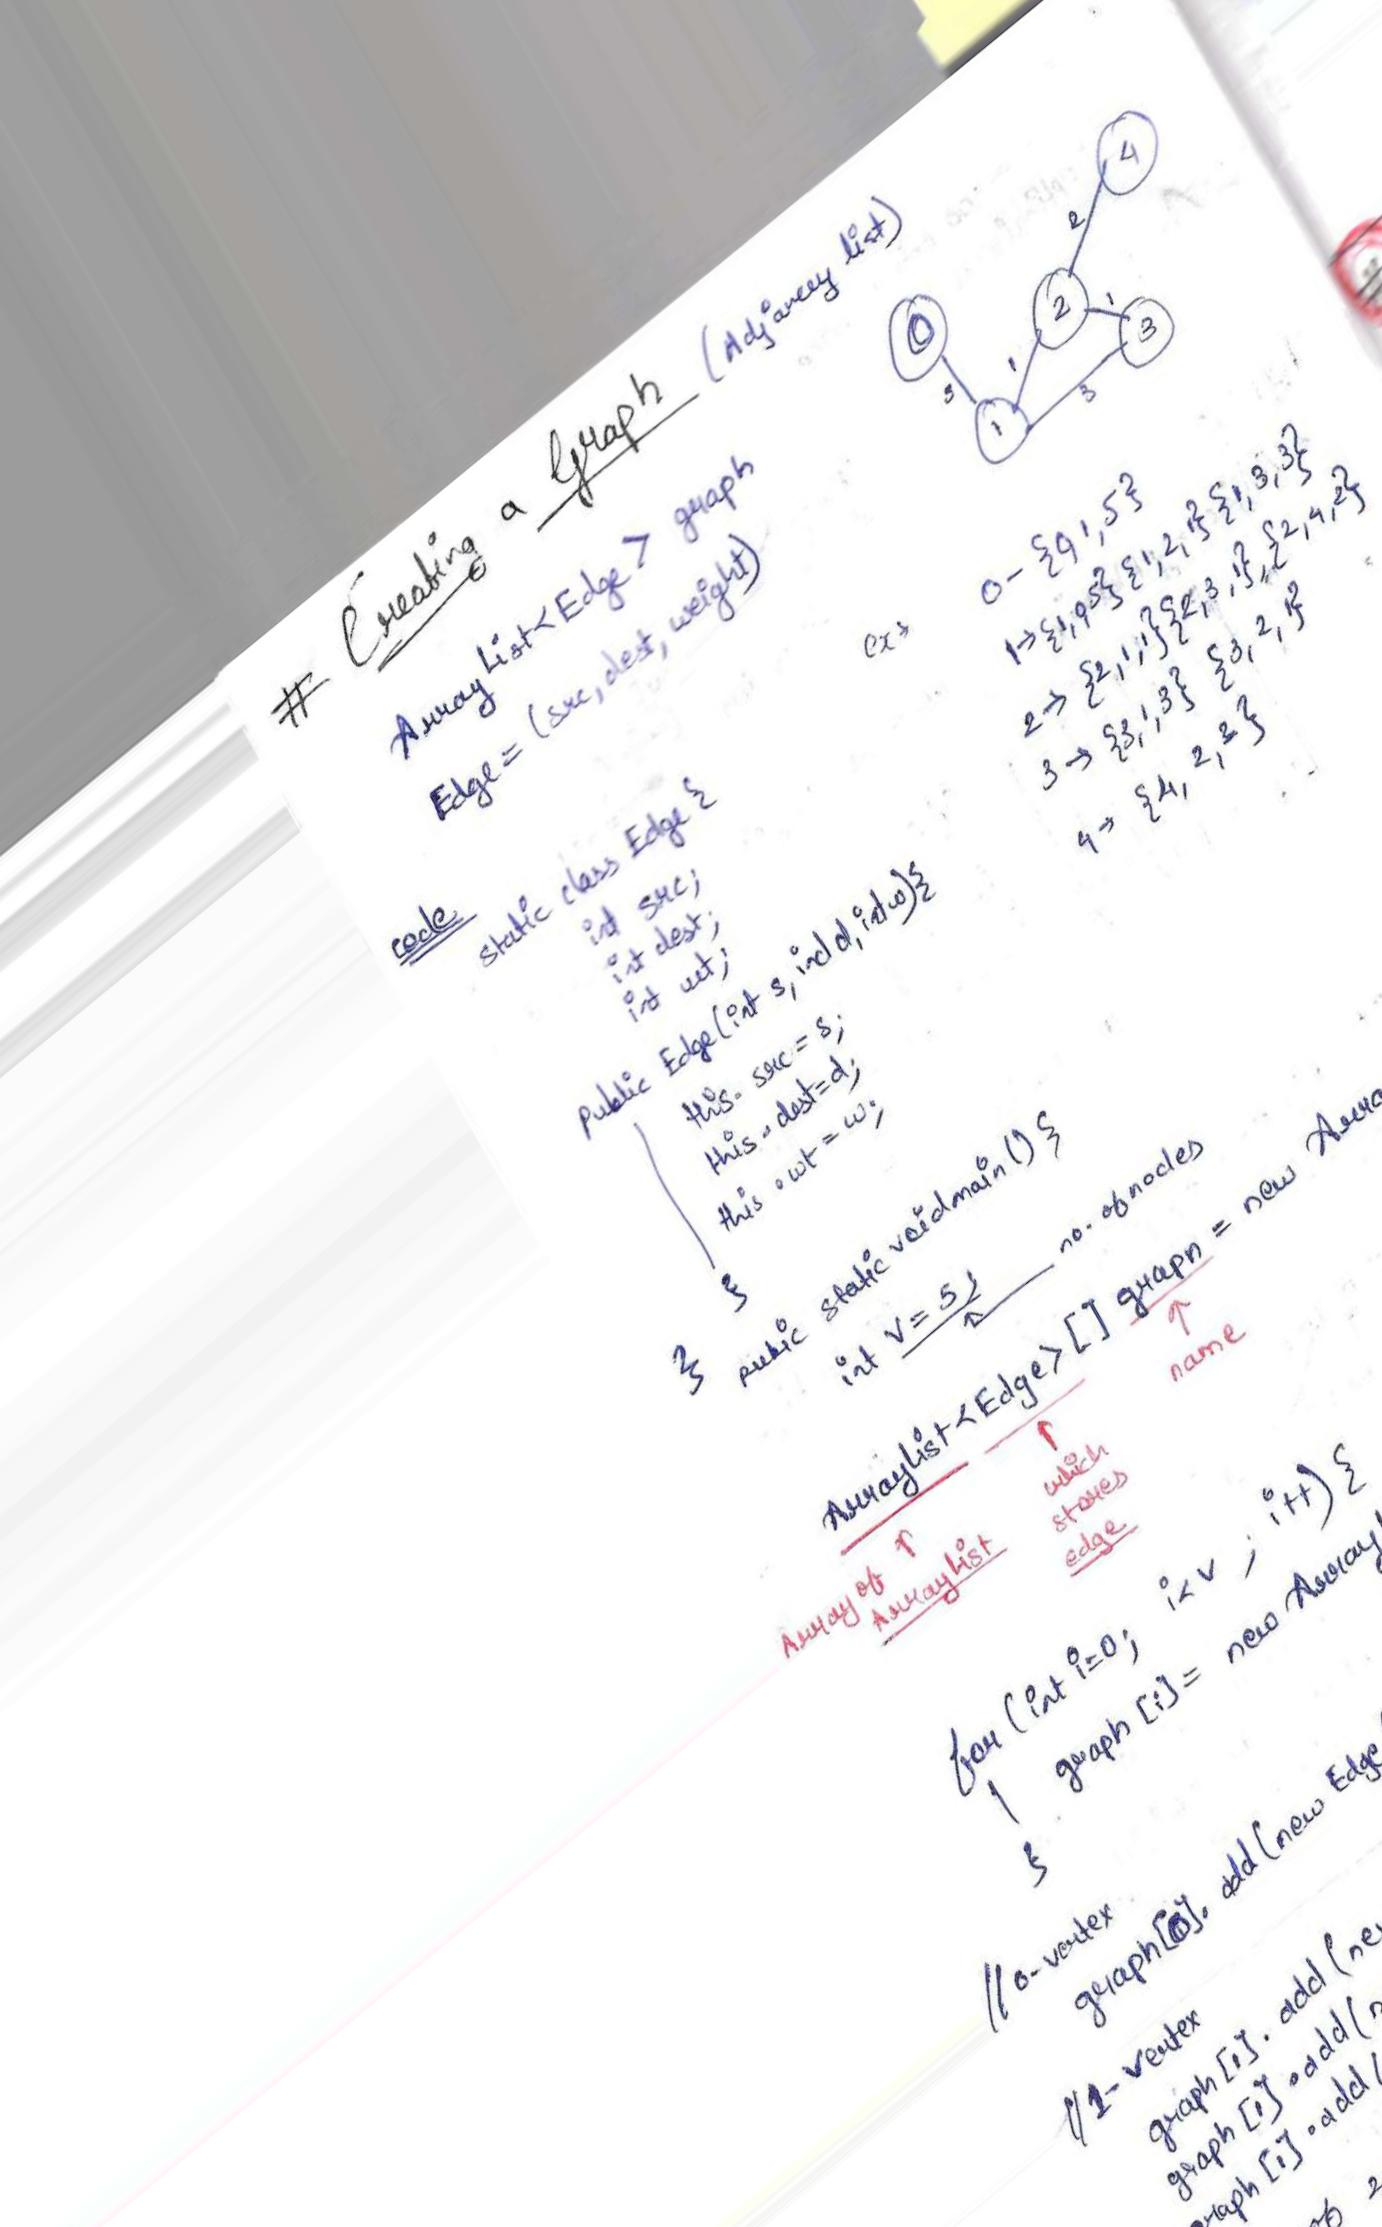 # Creating a Graph (Adjancey list)
ArrayList<Edge> graph
Edge = (src, dest, weight)
4
2
0
2
1
3
5
1
1
3
ex→
0 - {0, 1, 5}
1→ {1, 0, 5} {1, 2, 1} {1, 3, 3}
2 → {2, 1, 1} {2, 3, 1}, {2, 4, 2}
3 → {3, 1, 3} {3, 2, 1}
4 → {4, 2, 2}
code
static class Edge {
int src;
int dest;
int wt;
public Edge(int s, int d, int w){
this. src = s;
this. dest = d;
this. wt = w;
}
}
public static void main() {
int V = 5; no. of nodes
ArrayList<Edge>[] graph = new Arra
Array of ArrayList
which stores edge
name
for (int i=0; i<v ; i++) {
graph [i] = new Array
}
// 0-vertex
graph[0]. add (new Edge
// 1-vertex
graph [1]. add (ne
graph [1]. add (n
graph [1]. add (
2